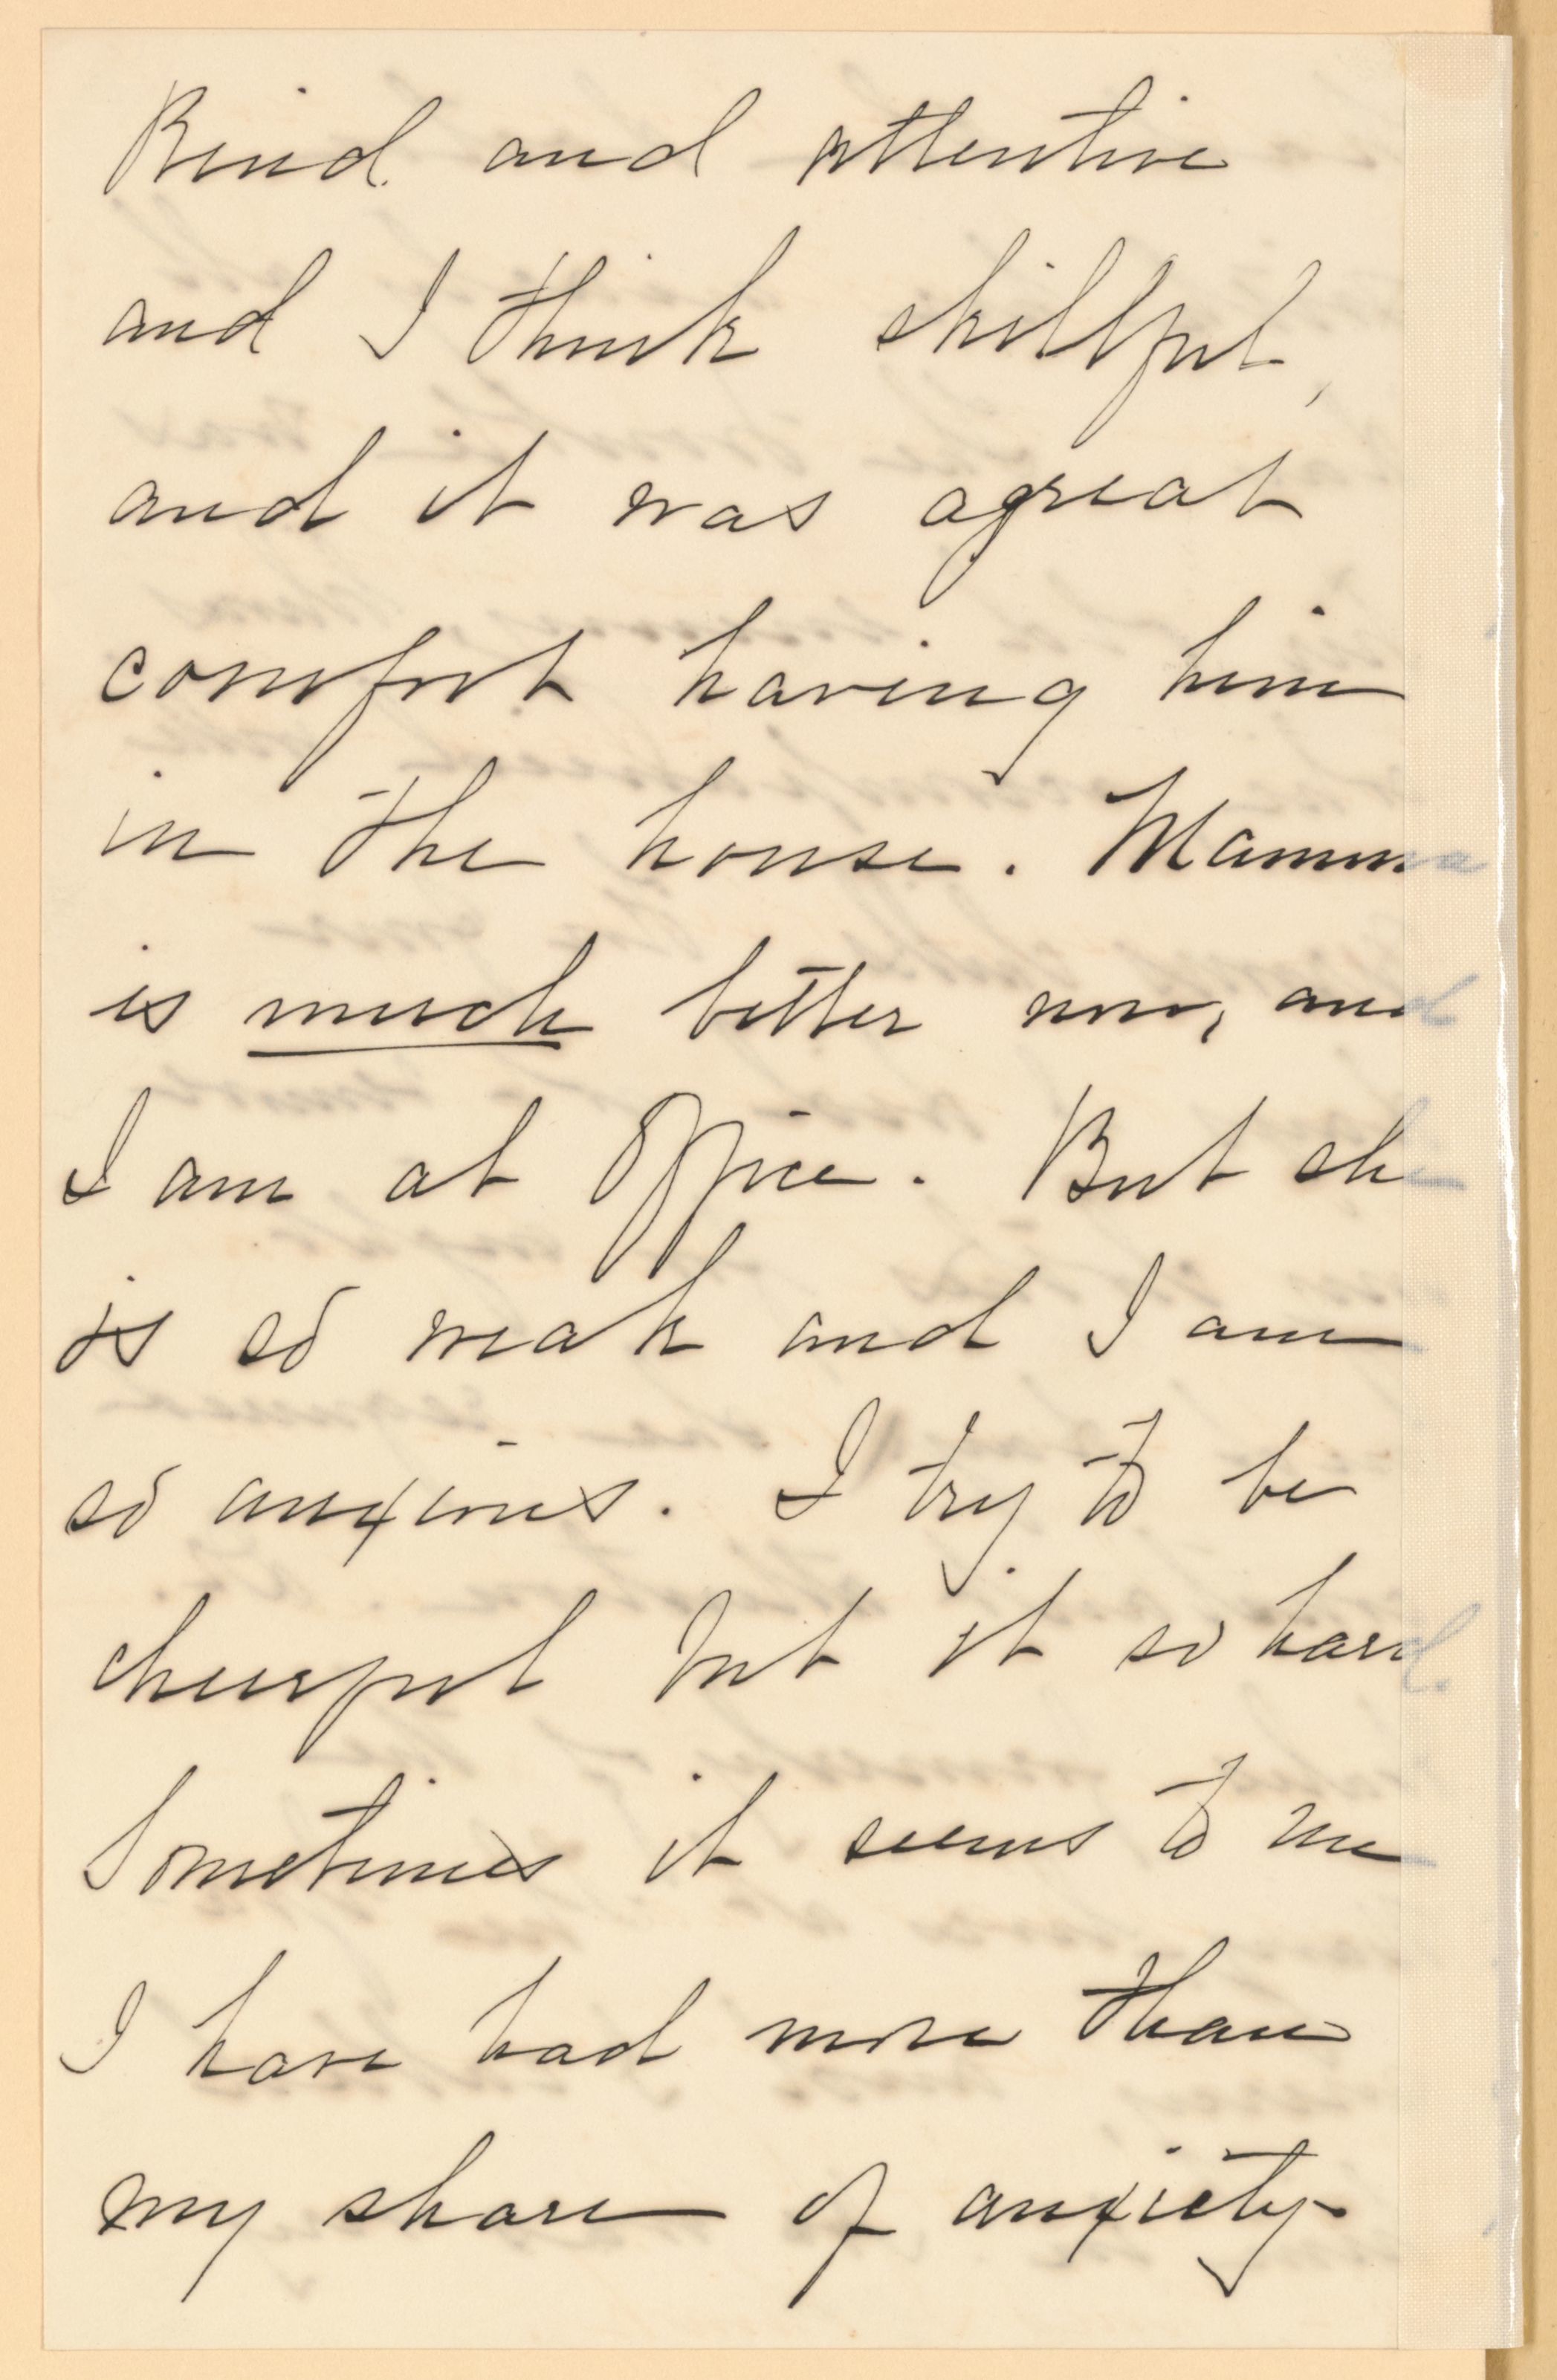 Kind and attentive
and I think skillful,
and it was a great
comfort having him
in the house. Mamma
is much better now, and
I am at Office. But she
is so weak and I am
so anxious. I try to be
cheerful but it so hard.
Sometimes it seems to me
I have had more than
my share of anxiety